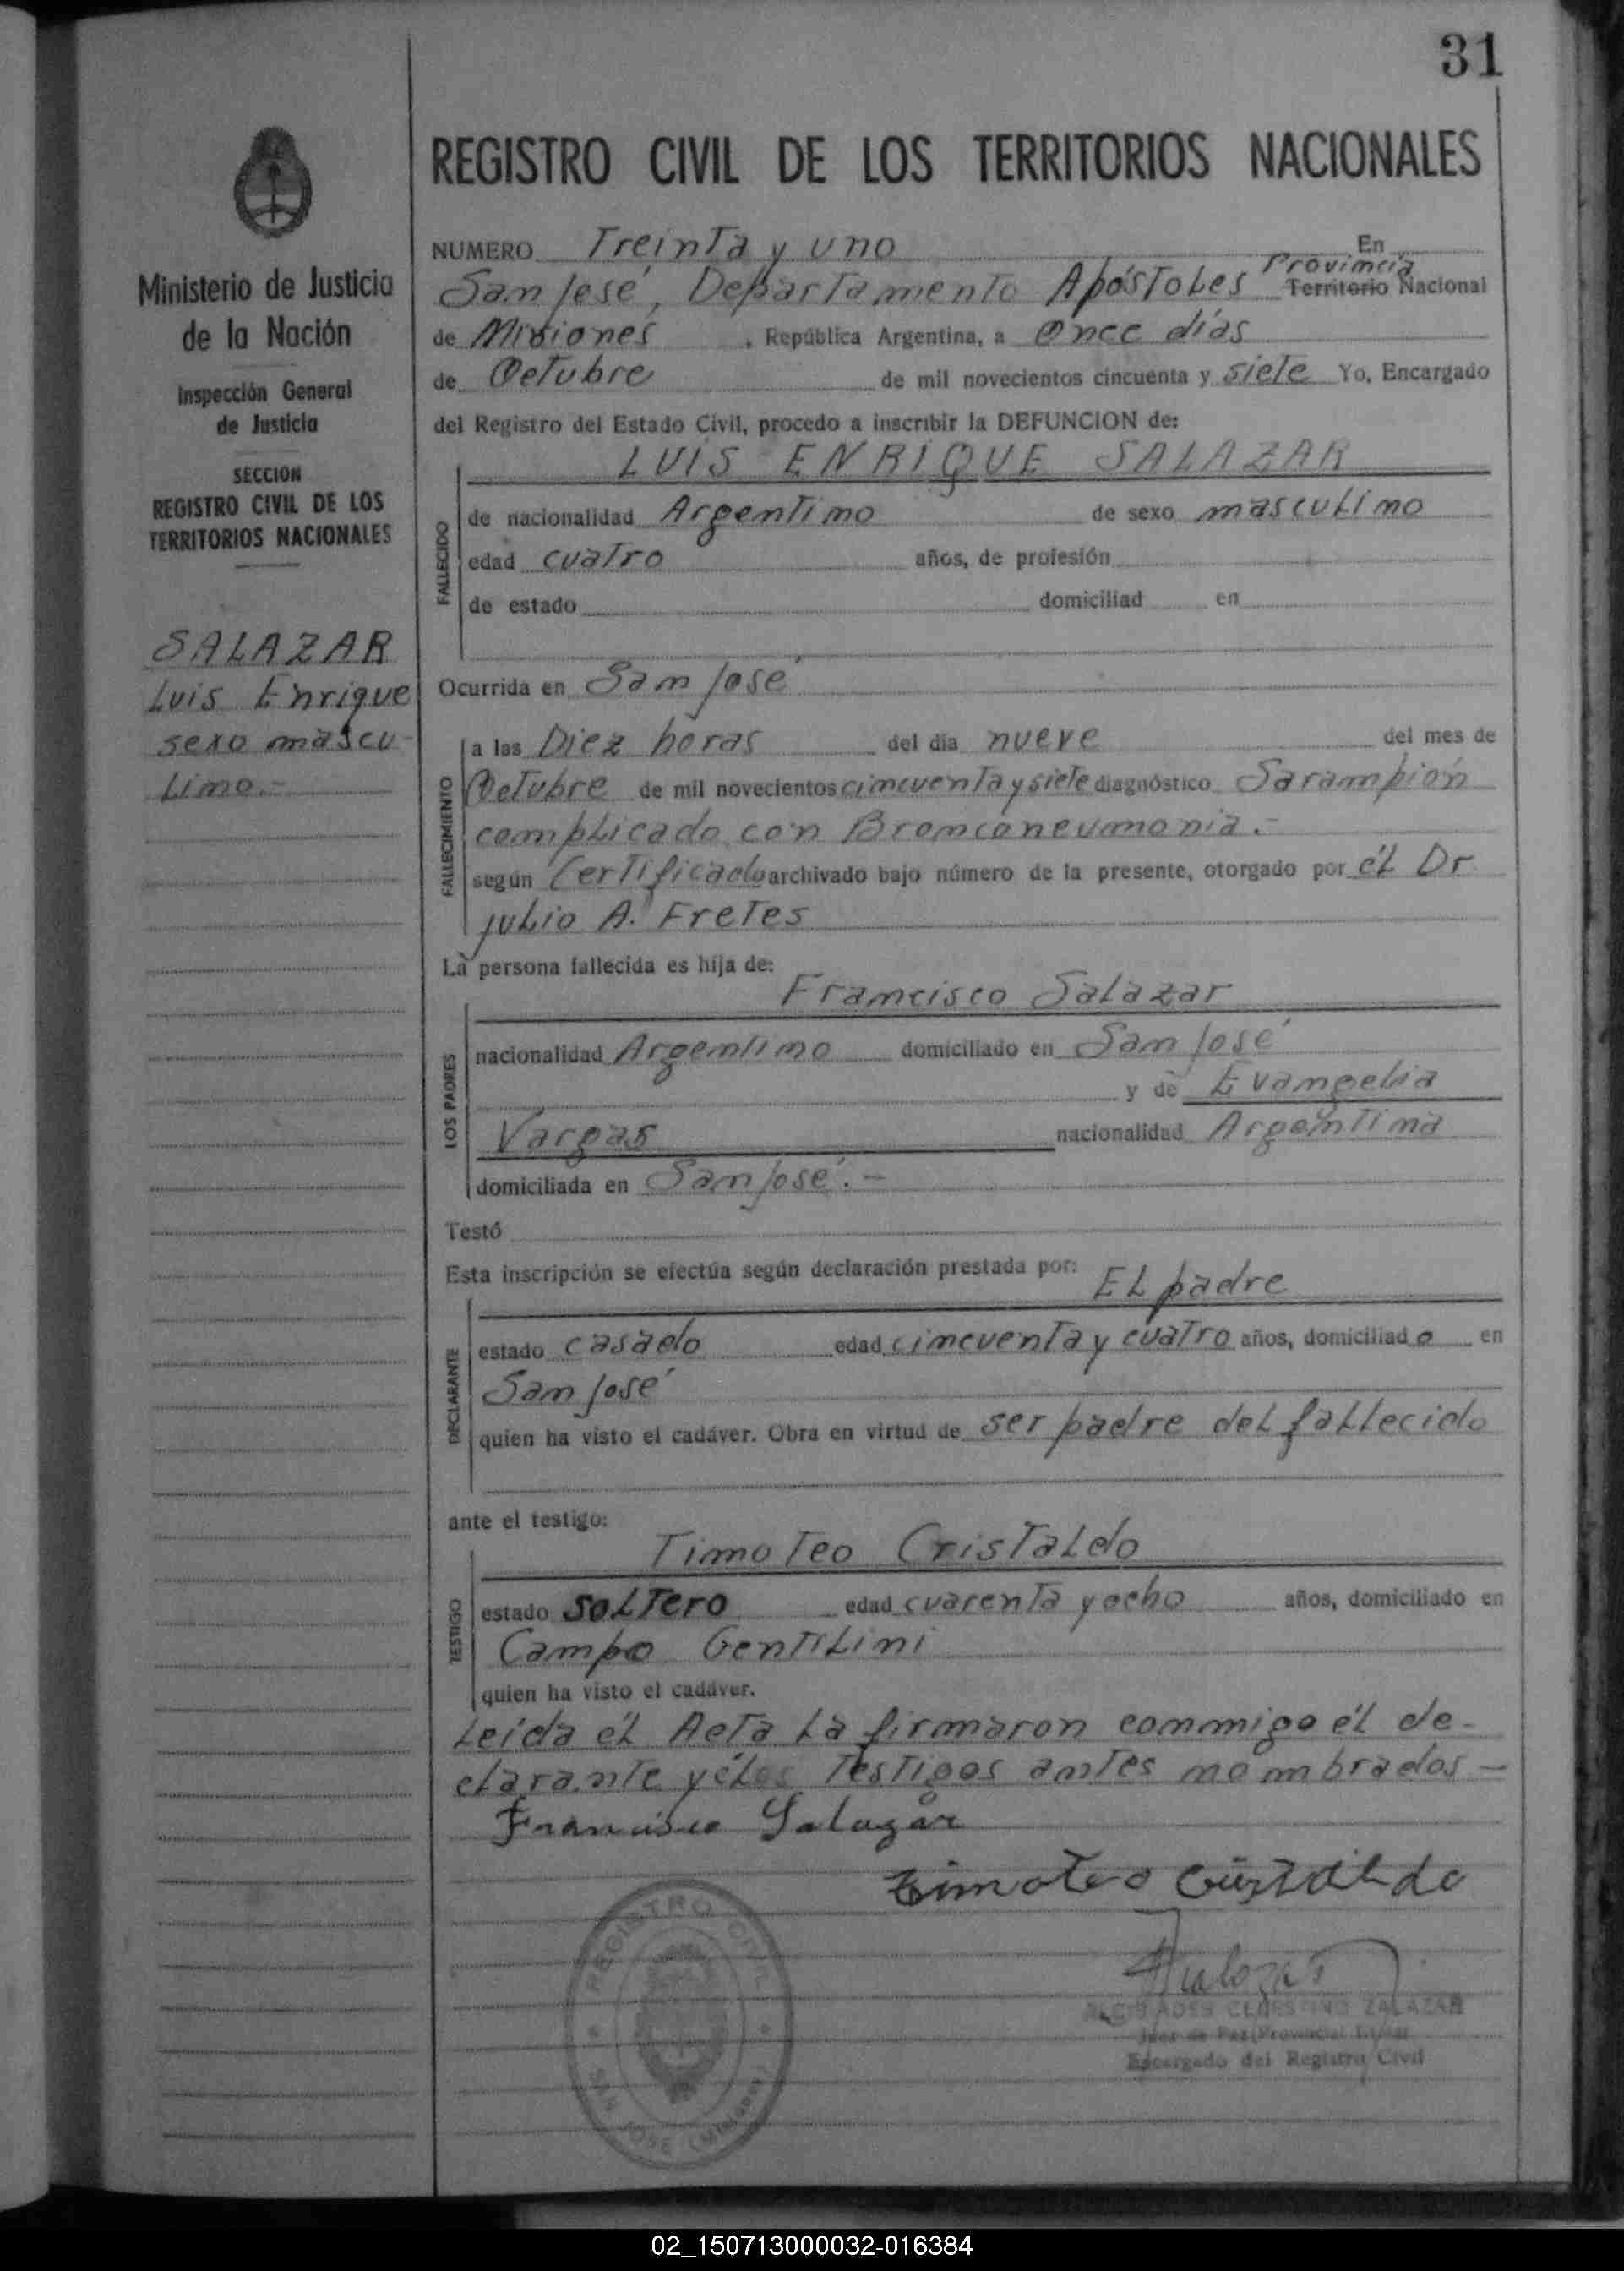 31
REGISTRO CIVIL DE LOS TERRITORIOS NACIONALES
Ministerio de Justicia
de la Nación
Inspección General
de Justicia
SECCION
REGISTRO CIVIL DE LOS
TERRITORIOS NACIONALES
SALAZAR
Luis Enrique
sexo mascu-
lino.-
NUMERO Treinta y uno En
San José, Departamento Apóstoles Provincia Territorio Nacional
de Misiones, República Argentina, a Once días
de Octubre de mil novecientos cincuenta y siete Yo, Encargado
del Registro del Estado Civil, procedo a inscribir la DEFUNCION de:
LUIS ENRIQUE SALAZAR
FALLECIDO
de nacionalidad Argentino de sexo masculino
edad cuatro años, de profesión
de estado domiciliad en
Ocurrida en San José
FALLECIMIENTO
a las Diez horas del día nueve del mes de
Octubre de mil novecientos cincuenta y siete diagnóstico Sarampión
complicado con Bronconeumonia.-
según Certificado archivado bajo número de la presente, otorgado por él Dr.
Julio A. Fretes
La persona fallecida es hija de:
Francisco Salazar
LOS PADRES
nacionalidad Argentino domiciliado en San José
y de Evangelia
Vargas nacionalidad Argentina
domiciliada en San José.-
Testó
Esta inscripción se efectúa según declaración prestada por:
El padre
DECLARANTE
estado casado edad cincuenta y cuatro años, domiciliado en
San José
quien ha visto el cadáver. Obra en virtud de ser padre del fallecido
ante el testigo:
Timoteo Cristaldo
TESTIGO
estado soltero edad cuarenta y ocho años, domiciliado en
Campo Gentilini
quien ha visto el cadáver.
Leída él Acta la firmaron conmigo él de-
clarante y élos Testigos antes nombrados -
Francisco Salazar
Timoteo Cristaldo
REGISTRO CIVIL
SAN JOSE (Misiones)
ZALAZAR
Juez de Paz
Encargado del Registro Civil
02_150713000032-016384